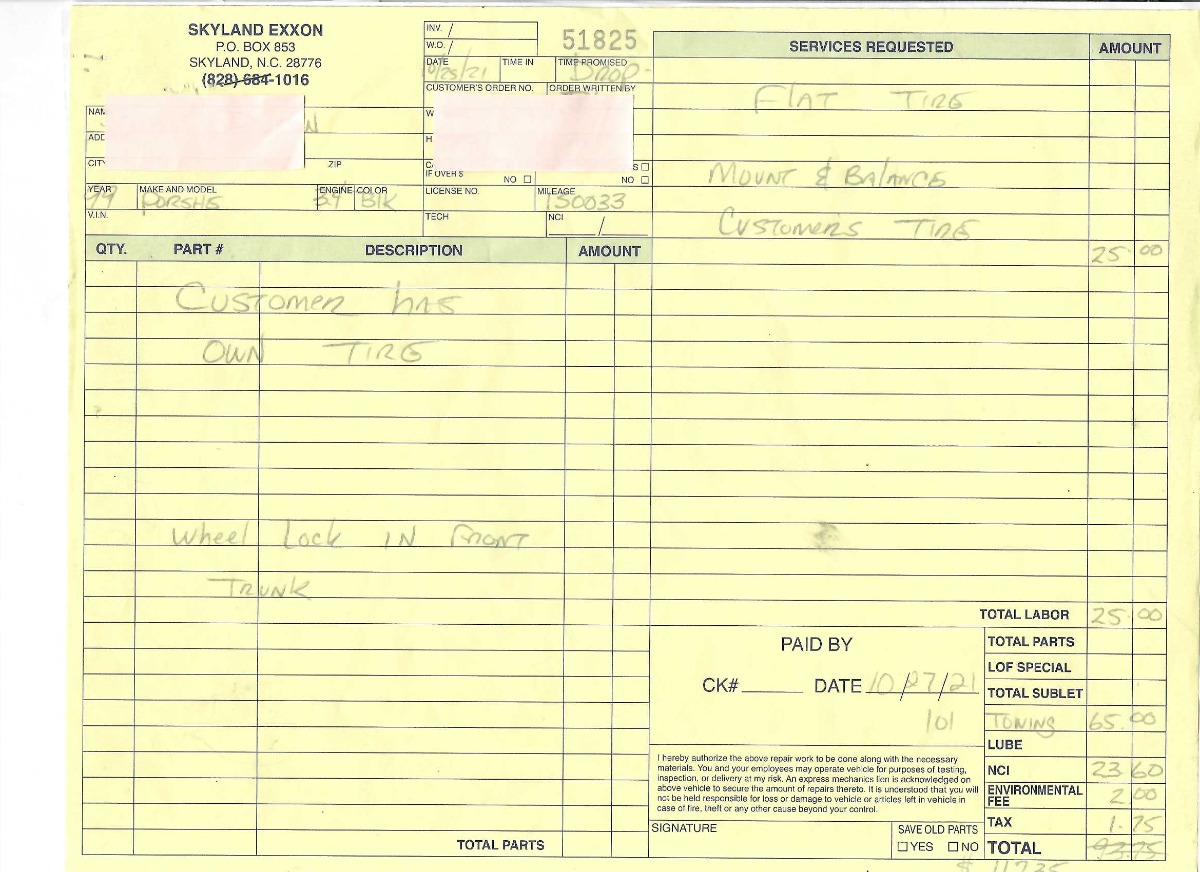 SKYLAND EXXON
P.O. BOX 853
SKYLAND, N.C. 28776
(828) 684-1016
INV.
W.O.
51825
DATE 10/25/21 TIME IN TIME PROMISED
DROP-
CUSTOMER'S ORDER NO. ORDER WRITTEN BY
NAM
ADD
CITY ZIP
IF OVER $
NO ☐ NO ☐
YEAR 99 MAKE AND MODEL PORSHE ENGINE 3.4 COLOR Blk LICENSE NO. MILEAGE 150033
V.I.N. TECH NCI /
QTY. PART # DESCRIPTION AMOUNT
CUSTOMER has
OWN TIRE
Wheel Lock IN FRONT
TRUNK
TOTAL PARTS
SERVICES REQUESTED AMOUNT
FlAT TIRE
MOUNT & BALANCE
CUSTOMERS TIRE
25.00
TOTAL LABOR 25.00
PAID BY
CK# DATE 10/27/21
101
TOTAL PARTS
LOF SPECIAL
TOTAL SUBLET
TOWING 65.00
LUBE
NCI 23 60
ENVIRONMENTAL FEE 2 00
TAX 1.75
TOTAL 93.75
$ 117.35
I hereby authorize the above repair work to be done along with the necessary
materials. You and your employees may operate vehicle for purposes of testing,
inspection, or delivery at my risk. An express mechanics lien is acknowledged on
above vehicle to secure the amount of repairs thereto. It is understood that you will
not be held responsible for loss or damage to vehicle or articles left in vehicle in
case of fire, theft or any other cause beyond your control.
SIGNATURE
SAVE OLD PARTS
☐ YES ☐ NO